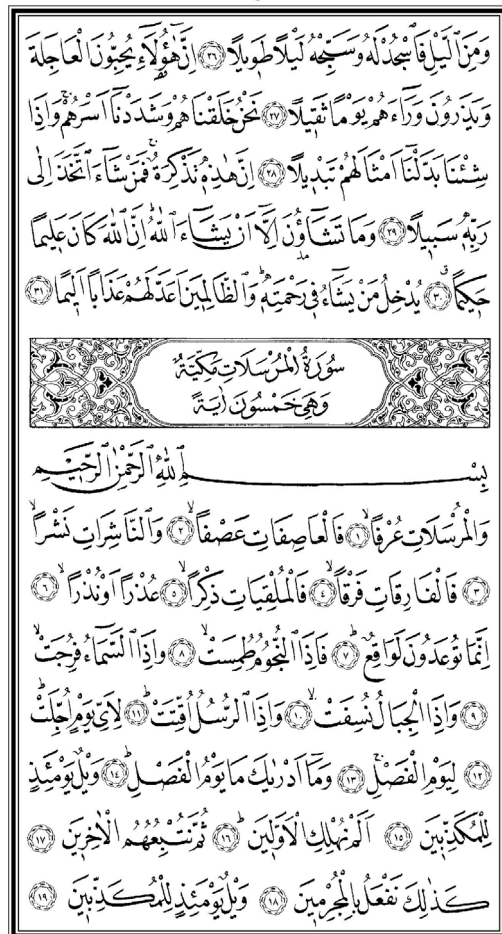 وَمِنَ الَّيْلِ فَاسْجُدْ لَهُ وَسَبِّحْهُ لَيْلًا طَوِيلًا ﴿٢٦﴾ اِنَّ هٰٓؤُلَٓاءِ يُحِبُّونَ الْعَاجِلَةَ
وَيَذَرُونَ وَرَٓاءَهُمْ يَوْمًا ثَقِيلًا ﴿٢٧﴾ نَحْنُ خَلَقْنَاهُمْ وَشَدَدْنَٓا اَسْرَهُمْۚ وَاِذَا
شِئْنَا بَدَّلْنَٓا اَمْثَالَهُمْ تَبْدِيلًا ﴿٢٨﴾ اِنَّ هٰذِهٖ تَذْكِرَةٌۚ فَمَنْ شَٓاءَ اتَّخَذَ اِلٰى
رَبِّهٖ سَبِيلًا ﴿٢٩﴾ وَمَا تَشَٓاؤُ۫نَ اِلَّٓا اَنْ يَشَٓاءَ اللّٰهُۜ اِنَّ اللّٰهَ كَانَ عَلِيمًا
حَكِيمًاۗ ﴿٣٠﴾ يُدْخِلُ مَنْ يَشَٓاءُ فِي رَحْمَتِهٖۜ وَالظَّالِمِينَ اَعَدَّ لَهُمْ عَذَابًا اَلِيمًا ﴿٣١﴾
سُورَةُ الْمُرْسَلَاتِ مَكِّيَّةٌ
وَهِيَ خَمْسُونَ اٰيَةً
بِسْمِ اللّٰهِ الرَّحْمٰنِ الرَّحِيمِ
وَالْمُرْسَلَاتِ عُرْفًاۙ ﴿١﴾ فَالْعَاصِفَاتِ عَصْفًاۙ ﴿٢﴾ وَالنَّاشِرَاتِ نَشْرًاۙ
﴿٣﴾ فَالْفَارِقَاتِ فَرْقًاۙ ﴿٤﴾ فَالْمُلْقِيَاتِ ذِكْرًاۙ ﴿٥﴾ عُذْرًا اَوْ نُذْرًاۙ ﴿٦﴾
اِنَّمَا تُوعَدُونَ لَوَاقِعٌۜ ﴿٧﴾ فَاِذَا النُّجُومُ طُمِسَتْۙ ﴿٨﴾ وَاِذَا السَّمَٓاءُ فُرِجَتْۙ
﴿٩﴾ وَاِذَا الْجِبَالُ نُسِفَتْۙ ﴿١٠﴾ وَاِذَا الرُّسُلُ اُقِّتَتْۜ ﴿١١﴾ لِاَيِّ يَوْمٍ اُجِّلَتْۜ
﴿١٢﴾ لِيَوْمِ الْفَصْلِۚ ﴿١٣﴾ وَمَٓا اَدْرٰيكَ مَا يَوْمُ الْفَصْلِۜ ﴿١٤﴾ وَيْلٌ يَوْمَئِذٍ
لِلْمُكَذِّبِينَ ﴿١٥﴾ اَلَمْ نُهْلِكِ الْاَوَّلِينَۜ ﴿١٦﴾ ثُمَّ نُتْبِعُهُمُ الْاٰخِرِينَ ﴿١٧﴾
كَذٰلِكَ نَفْعَلُ بِالْمُجْرِمِينَ ﴿١٨﴾ وَيْلٌ يَوْمَئِذٍ لِلْمُكَذِّبِينَ ﴿١٩﴾